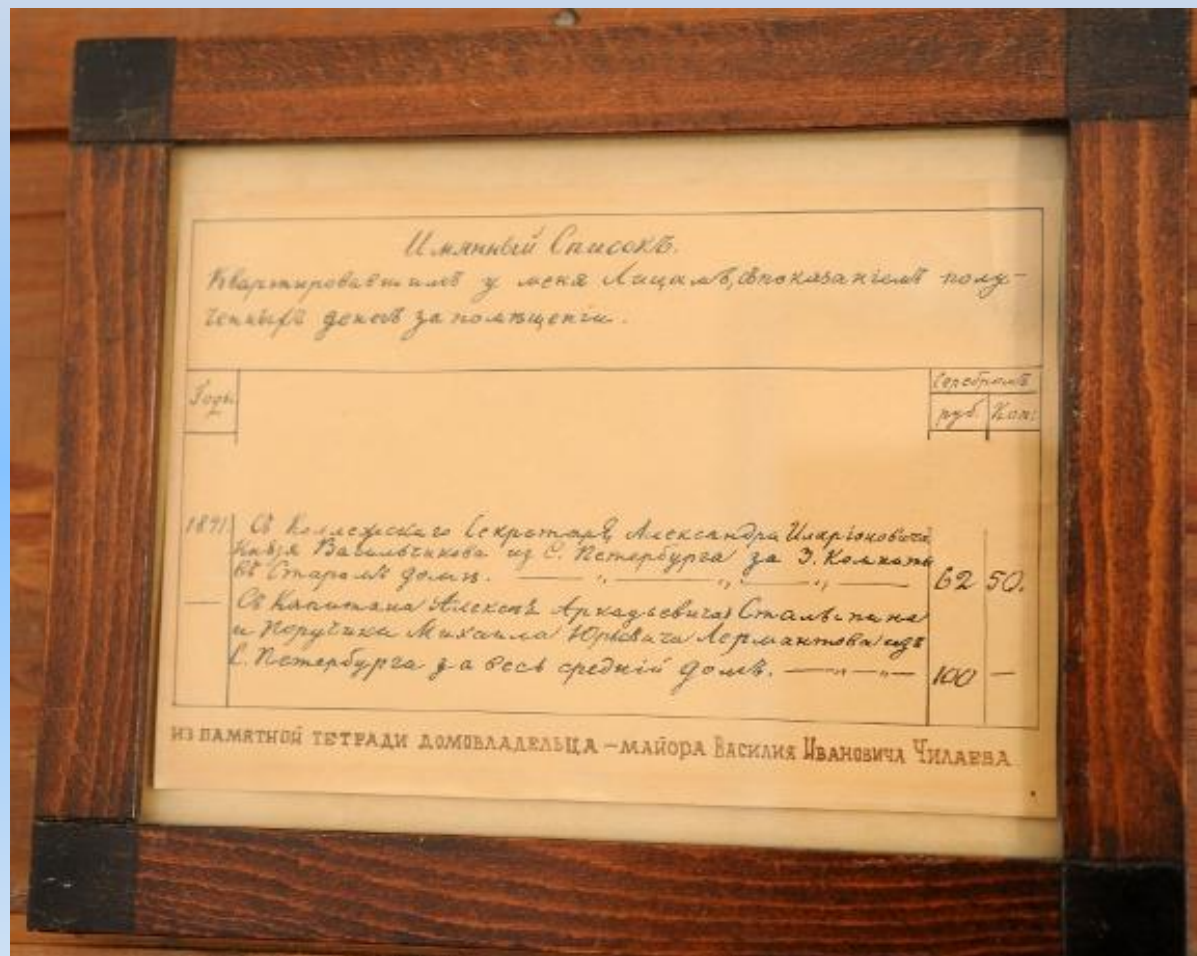 Имянный Списокъ.
Квартировавшимъ у меня Лицамъ, съ показаніемъ полу-
ченныхъ денегъ за помѣщеніи.
Годы.
Серебромъ
руб. Коп:
1841 Съ Коллежскаго Секретаря, Александра Иларіоновича
Князя Васильчикова из С. Петербурга за 3. Комнаты
въ Старомъ домѣ. — „ — „ — „ — 62 50.
— Съ Капитана Алексѣя Аркадьевича Столыпина
и Поручика Михаила Юрьевича Лермантова изъ
С. Петербурга за весь средній домъ. — „ — „ — 100 —
ИЗ ПАМЯТНОЙ ТЕТРАДИ ДОМОВЛАДЕЛЬЦА – МАЙОРА ВАСИЛИЯ ИВАНОВИЧА ЧИЛАЕВА